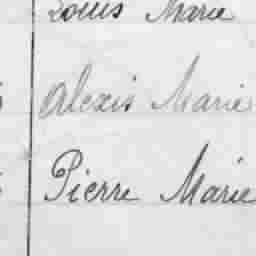 Louis Marie
Alexis Marie
Pierre Marie